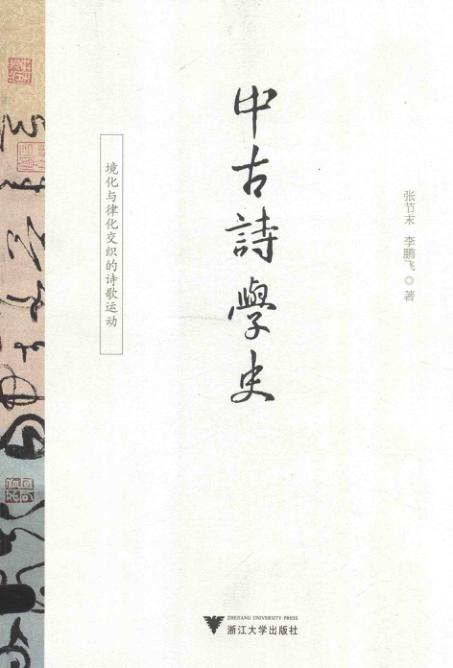 中古詩學史
境化与律化交织的诗歌运动
张节末 李鹏飞◎著
ZHEJIANG UNIVERSITY PRESS
浙江大学出版社